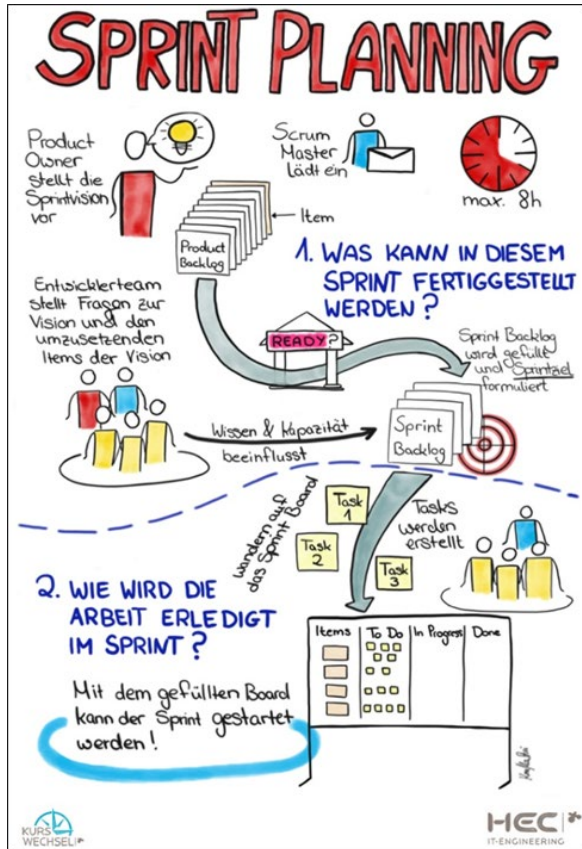 SPRINT PLANNING
Product
Owner
stellt die
Sprintvision
vor
Scrum
Master
Lädt ein
max. 8h
Item
Product
Backlog
1. WAS KANN IN DIESEM
SPRINT FERTIGGESTELLT
WERDEN?
Entwicklerteam
stellt Fragen zur
Vision und den
umzusetzenden
Items der Vision
READY?
Sprint Backlog
wird gefüllt
und Sprintziel
formuliert
Wissen & Kapazität
beeinflusst
Sprint
Backlog
wandern auf
das Sprint Board
Task
1
Task
2
Task
3
Tasks
werden
erstellt
2. WIE WIRD DIE
ARBEIT ERLEDIGT
IM SPRINT?
Items To Do In Progress Done
Mit dem gefüllten Board
kann der Sprint gestartet
werden!
KURS
WECHSEL
HEC
IT-ENGINEERING